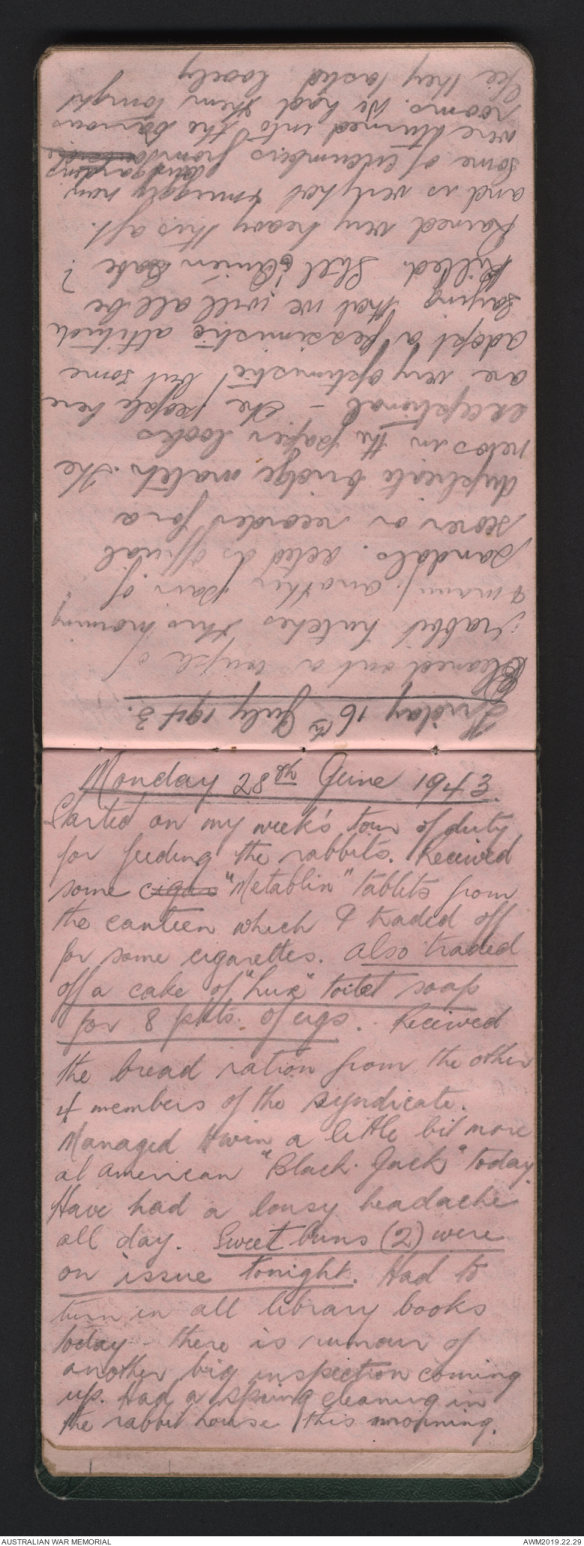 Friday 16th July 1943.
Cleaned out a couple of
rabbit hutches this morning
& many another pair of
sandals. acted as official
scorer or recorder for a
duplicate bridge match. The
news in the paper looks
exceptional – the people here
are very optimistic, but some
adopt a pessimistic attitude
saying that we will all be
killed. Still "Quien Sabe"?
Rained very heavy this aft.
and is very hot & muggly now
some of cucumbers from garden
were turned into the various
rooms. We had them tonight
they tasted lovely
Monday 28th June 1943.
Started on my week's tour of duty
for feeding the rabbits. Received
some cigars "Metablin" tablits from
the canteen which I traded off
for some cigarettes. also traded
off a cake of "Lux" toilet soap
for 8 pkts. of cigs. Received
the bread ration from the other
4 members of the syndicate.
Managed to win a little bit more
at american "Black Jack" today.
Have had a lousy headache
all day. Sweet buns (2) were
on issue tonight. Had to
turn in all library books
today - there is rumour of
another big inspection coming
up. Had a spring cleaning in
the rabbit house this morning.
AUSTRALIAN WAR MEMORIAL
AWM2019.22.29